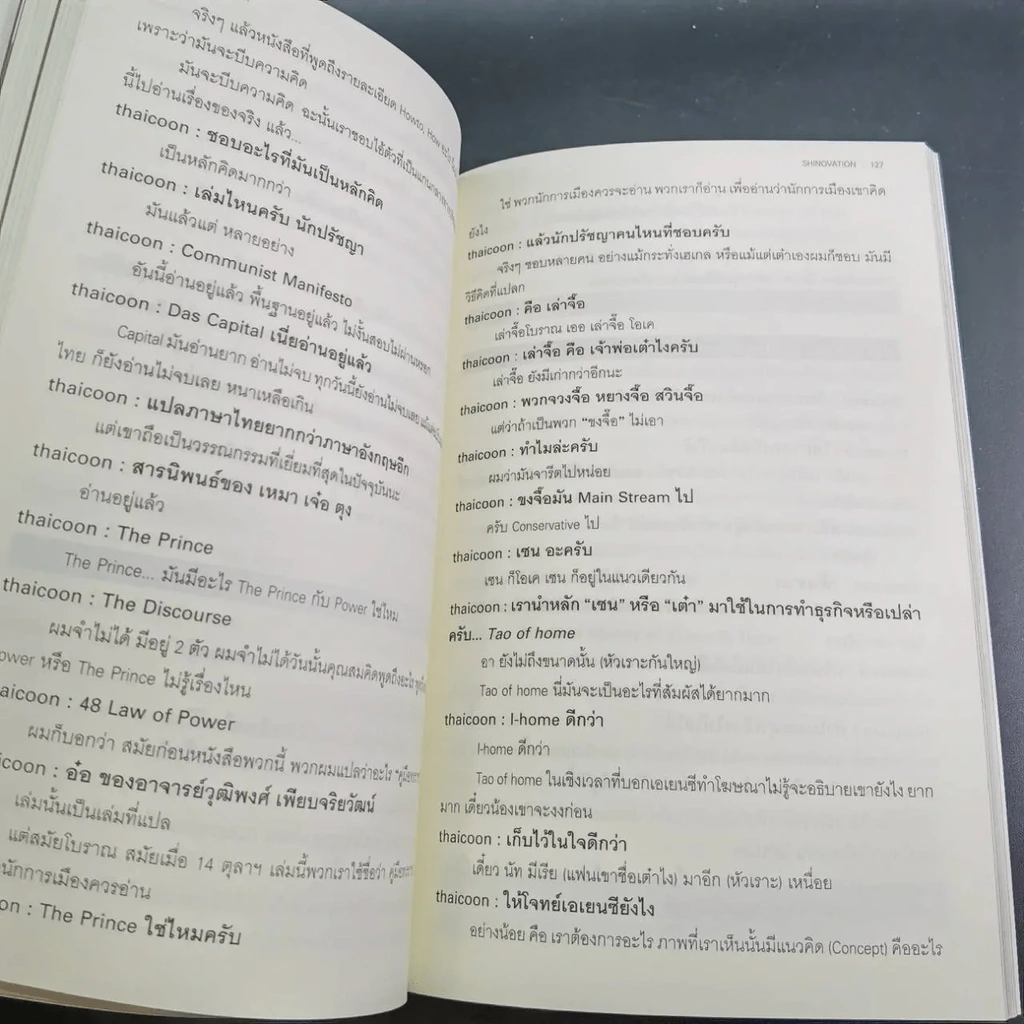 จริงๆ แล้วหนังสือที่พูดถึงรายละเอียด Howto, How
เพราะว่ามันจะบีบความคิด
มันจะบีบความคิด ฉะนั้นเราชอบไอ้ตัวที่เป็นแกนกลาง
นี้ไปอ่านเรื่องของจริง แล้ว...
thaicoon : ชอบอะไรที่มันเป็นหลักคิด
เป็นหลักคิดมากกว่า
thaicoon : เล่มไหนครับ นักปรัชญา
มันแล้วแต่ หลายอย่าง
thaicoon : Communist Manifesto
อันนี้อ่านอยู่แล้ว พื้นฐานอยู่แล้ว ไม่งั้นสอบไม่ผ่านหรอก
thaicoon : Das Capital เนี่ยอ่านอยู่แล้ว
Capital มันอ่านยาก อ่านไม่จบ ทุกวันนี้ยังอ่านไม่จบเลย
ไทย ก็ยังอ่านไม่จบเลย หนาเหลือเกิน
thaicoon : แปลภาษาไทยยากกว่าภาษาอังกฤษอีก
แต่เขาถือเป็นวรรณกรรมที่เยี่ยมที่สุดในปัจจุบันนะ
thaicoon : สารนิพนธ์ของ เหมา เจ๋อ ตุง
อ่านอยู่แล้ว
thaicoon : The Prince
The Prince... มันมีอะไร The Prince กับ Power ใช่ไหม
thaicoon : The Discourse
ผมจำไม่ได้ มีอยู่ 2 ตัว ผมจำไม่ได้วันนั้นคุณสมคิดพูดถึงอะไร
ower หรือ The Prince ไม่รู้เรื่องไหน
aicoon : 48 Law of Power
ผมก็บอกว่า สมัยก่อนหนังสือพวกนี้ พวกผมแปลว่าอะไร
icoon : อ๋อ ของอาจารย์วุฒิพงศ์ เพียบจริยวัฒน์
เล่มนั้นเป็นเล่มที่แปล
แต่สมัยโบราณ สมัยเมื่อ 14 ตุลาฯ เล่มนี้พวกเราใช้ชื่อว่า
นักการเมืองควรอ่าน
on : The Prince ใช่ไหมครับ
SHINOVATION 127
ใช่ พวกนักการเมืองควรจะอ่าน พวกเราก็อ่าน เพื่ออ่านว่านักการเมืองเขาคิด
ยังไง
thaicoon : แล้วนักปรัชญาคนไหนที่ชอบครับ
จริงๆ ชอบหลายคน อย่างแม้กระทั่งเฮเกล หรือแม้แต่เต๋าเองผมก็ชอบ มันมี
วิธีคิดที่แปลก
thaicoon : คือ เล่าจื๊อ
เล่าจื๊อโบราณ เออ เล่าจื๊อ โอเค
thaicoon : เล่าจื๊อ คือ เจ้าพ่อเต๋าไงครับ
เล่าจื๊อ ยังมีเก่ากว่าอีกนะ
thaicoon : พวกจวงจื๊อ หยางจื๊อ สวินจื๊อ
แต่ว่าถ้าเป็นพวก “ขงจื๊อ” ไม่เอา
thaicoon : ทำไมล่ะครับ
ผมว่ามันจารีตไปหน่อย
thaicoon : ขงจื๊อมัน Main Stream ไป
ครับ Conservative ไป
thaicoon : เซน อะครับ
เซน ก็โอเค เซน ก็อยู่ในแนวเดียวกัน
thaicoon : เรานำหลัก “เซน” หรือ “เต๋า” มาใช้ในการทำธุรกิจหรือเปล่า
ครับ... Tao of home
อา ยังไม่ถึงขนาดนั้น (หัวเราะกันใหญ่)
Tao of home นี่มันจะเป็นอะไรที่สัมผัสได้ยากมาก
thaicoon : I-home ดีกว่า
I-home ดีกว่า
Tao of home ในเชิงเวลาที่บอกเอเยนซีทำโฆษณาไม่รู้จะอธิบายเขายังไง ยาก
มาก เดี๋ยวน้องเขาจะงงก่อน
thaicoon : เก็บไว้ในใจดีกว่า
เดี๋ยว นัท มีเรีย (แฟนเขาชื่อเต๋าไง) มาอีก (หัวเราะ) เหนื่อย
thaicoon : ให้โจทย์เอเยนซียังไง
อย่างน้อย คือ เราต้องการอะไร ภาพที่เราเห็นนั้นมีแนวคิด (Concept) คืออะไร